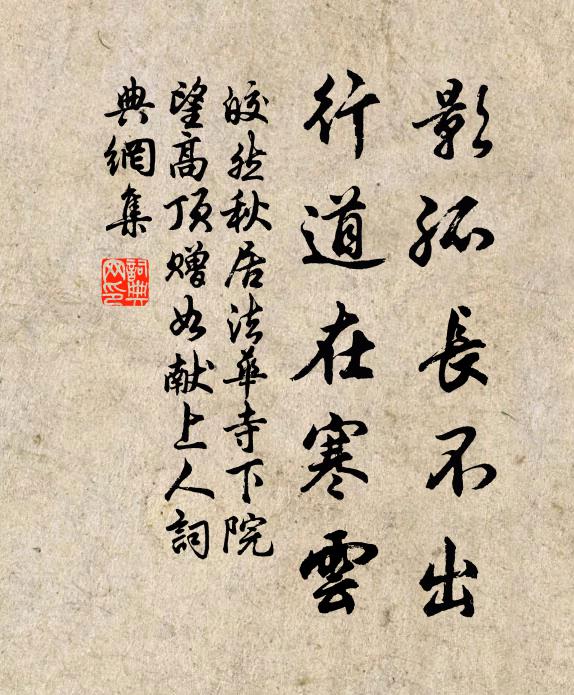 影孤長不出
行道在寒雲
皎然秋居法華寺下院
望高頂贈如献上人詞
典網集
詞典網印